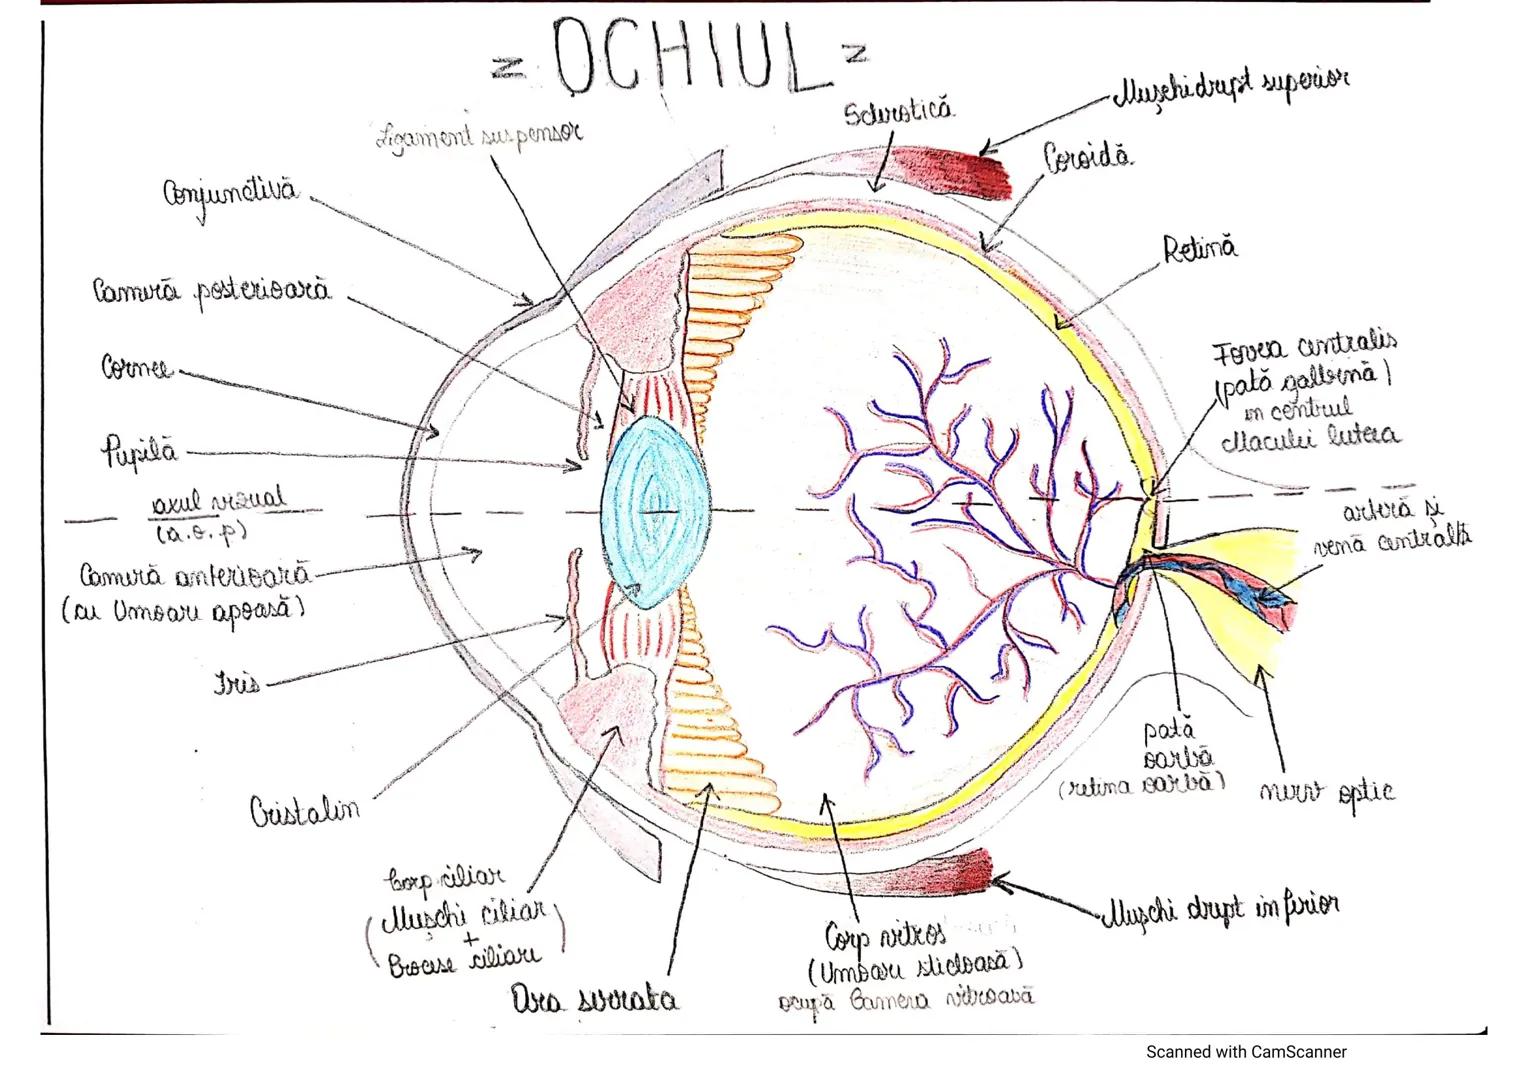 = OCHIUL =
Ligament suspensor
Sclerotică
Mușchi drept superior
Coroidă
Conjunctivă
Retină
Cameră posterioară
Fovea centralis
(pată galbenă)
în centrul
Maculei lutea
Cornee
Pupilă
axul vizual
(a.o.p)
arteră și
venă centrală
Cameră anterioară
(cu Umoare apoasă)
Iris
pată
oarbă
(retina oarbă)
nerv optic
Cristalin
Corp ciliar
(Mușchi ciliar
+
Procese ciliare)
Mușchi drept inferior
Corp vitros
(Umoare sticloasă)
ocupă Camera vitroasă
Ora serrata
Scanned with CamScanner